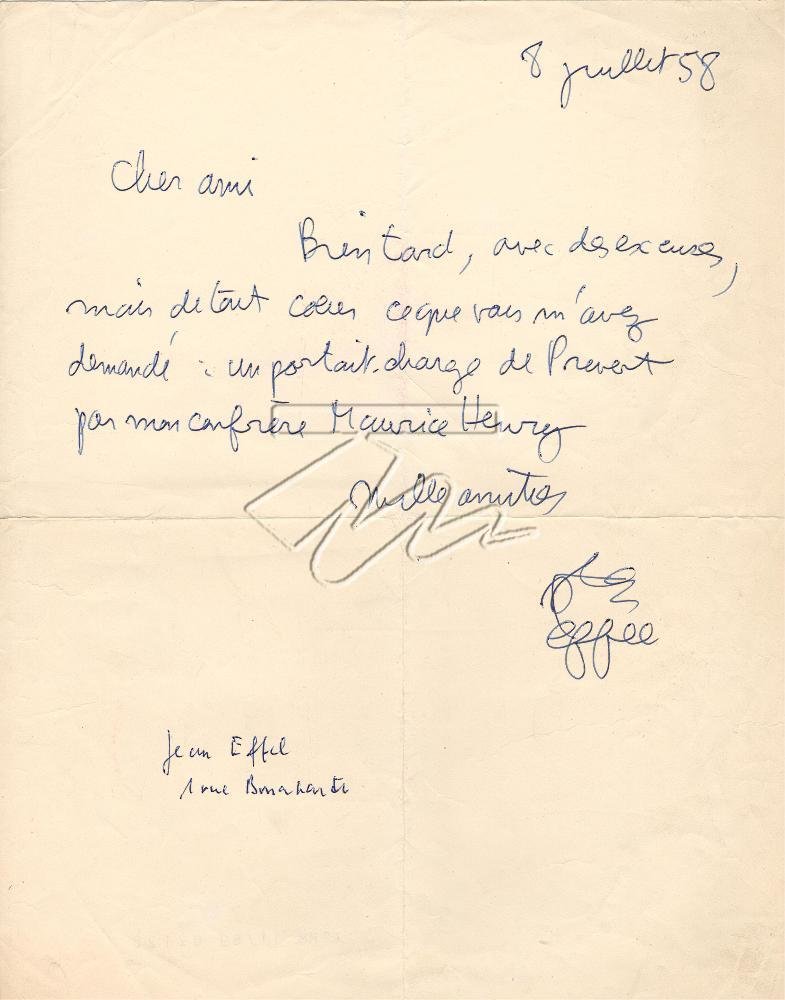 8 juillet 58
Cher ami
Bien tard, avec des excuses,
mais de tout coeur ce que vous m'avez
demandé : un portrait-charge de Prevert
par mon confrère Maurice Henry
Mille amitiés
Jean Effel
1 rue Bonaparte